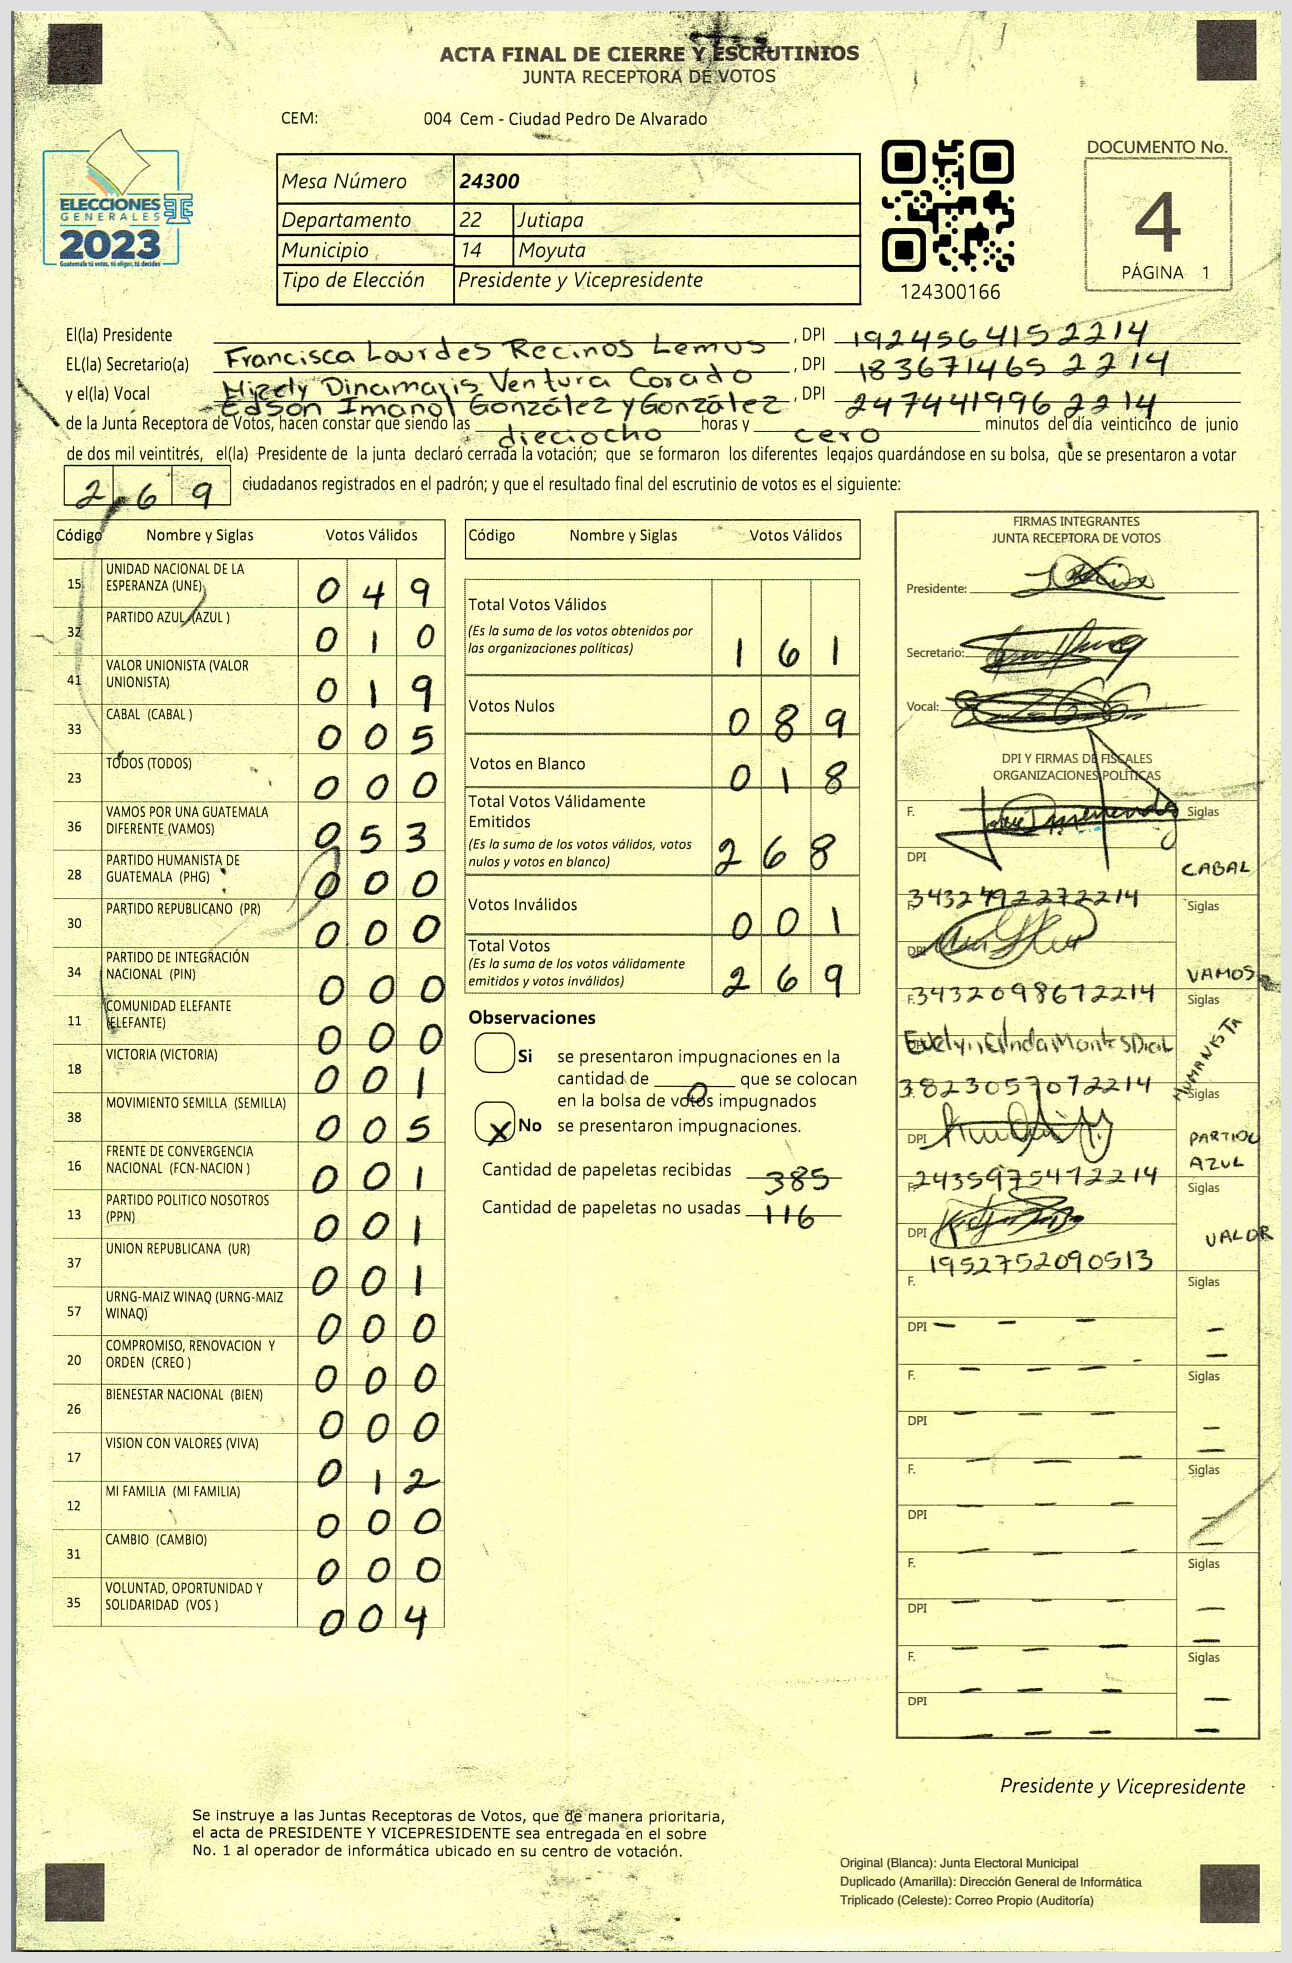 ACTA FINAL DE CIERRE Y ESCRUTINIOS
JUNTA RECEPTORA DE VOTOS
CEM: 004 Cem - Ciudad Pedro De Alvarado
ELECCIONES
GENERALES
2023
Guatemala tú votas, tú eliges, tú decides
Mesa Número 24300
Departamento 22 Jutiapa
Municipio 14 Moyuta
Tipo de Elección Presidente y Vicepresidente
124300166
DOCUMENTO No.
4
PÁGINA 1
El(la) Presidente Francisca Lourdes Recinos Lemus , DPI 1924564152214
EL(la) Secretario(a) Dinamaris Ventura Corado , DPI 1836714652214
y el(la) Vocal Edson Imanol González y González , DPI 2474419962214
de la Junta Receptora de Votos, hacen constar que siendo las dieciocho horas y cero minutos del día veinticinco de junio
de dos mil veintitrés, el(la) Presidente de la junta declaró cerrada la votación; que se formaron los diferentes legajos guardándose en su bolsa, que se presentaron a votar
269 ciudadanos registrados en el padrón; y que el resultado final del escrutinio de votos es el siguiente:
Código Nombre y Siglas Votos Válidos
15 UNIDAD NACIONAL DE LA ESPERANZA (UNE) 049
32 PARTIDO AZUL (AZUL ) 010
41 VALOR UNIONISTA (VALOR UNIONISTA) 019
33 CABAL (CABAL ) 005
23 TODOS (TODOS) 000
36 VAMOS POR UNA GUATEMALA DIFERENTE (VAMOS) 053
28 PARTIDO HUMANISTA DE GUATEMALA (PHG) 000
30 PARTIDO REPUBLICANO (PR) 000
34 PARTIDO DE INTEGRACIÓN NACIONAL (PIN) 000
11 COMUNIDAD ELEFANTE (ELEFANTE) 000
18 VICTORIA (VICTORIA) 001
38 MOVIMIENTO SEMILLA (SEMILLA) 005
16 FRENTE DE CONVERGENCIA NACIONAL (FCN-NACION ) 001
13 PARTIDO POLITICO NOSOTROS (PPN) 001
37 UNION REPUBLICANA (UR) 001
57 URNG-MAIZ WINAQ (URNG-MAIZ WINAQ) 000
20 COMPROMISO, RENOVACION Y ORDEN (CREO ) 000
26 BIENESTAR NACIONAL (BIEN) 000
17 VISION CON VALORES (VIVA) 012
12 MI FAMILIA (MI FAMILIA) 000
31 CAMBIO (CAMBIO) 000
35 VOLUNTAD, OPORTUNIDAD Y SOLIDARIDAD (VOS ) 004
Código Nombre y Siglas Votos Válidos
Total Votos Válidos
(Es la suma de los votos obtenidos por
las organizaciones políticas) 161
Votos Nulos 089
Votos en Blanco 018
Total Votos Válidamente
Emitidos
(Es la suma de los votos válidos, votos
nulos y votos en blanco) 268
Votos Inválidos 001
Total Votos
(Es la suma de los votos válidamente
emitidos y votos inválidos) 269
Observaciones
Si se presentaron impugnaciones en la
cantidad de 0 que se colocan
en la bolsa de votos impugnados
X No se presentaron impugnaciones.
Cantidad de papeletas recibidas 385
Cantidad de papeletas no usadas 116
FIRMAS INTEGRANTES
JUNTA RECEPTORA DE VOTOS
Presidente:
Secretario:
Vocal:
DPI Y FIRMAS DE FISCALES
ORGANIZACIONES POLÍTICAS
F. Siglas
DPI 3432492272214 CABAL
F. Siglas
DPI 3432098672214 VAMOS
F. Siglas
DPI 3823057072214 HUMANISTA
F. Siglas
DPI 2435975472214 PARTIDO AZUL
F. Siglas
DPI 1952752090513 VALOR
F. Siglas
DPI
F. Siglas
DPI
F. Siglas
DPI
F. Siglas
DPI
F. Siglas
DPI
Presidente y Vicepresidente
Se instruye a las Juntas Receptoras de Votos, que de manera prioritaria,
el acta de PRESIDENTE Y VICEPRESIDENTE sea entregada en el sobre
No. 1 al operador de informática ubicado en su centro de votación.
Original (Blanca): Junta Electoral Municipal
Duplicado (Amarilla): Dirección General de Informática
Triplicado (Celeste): Correo Propio (Auditoría)